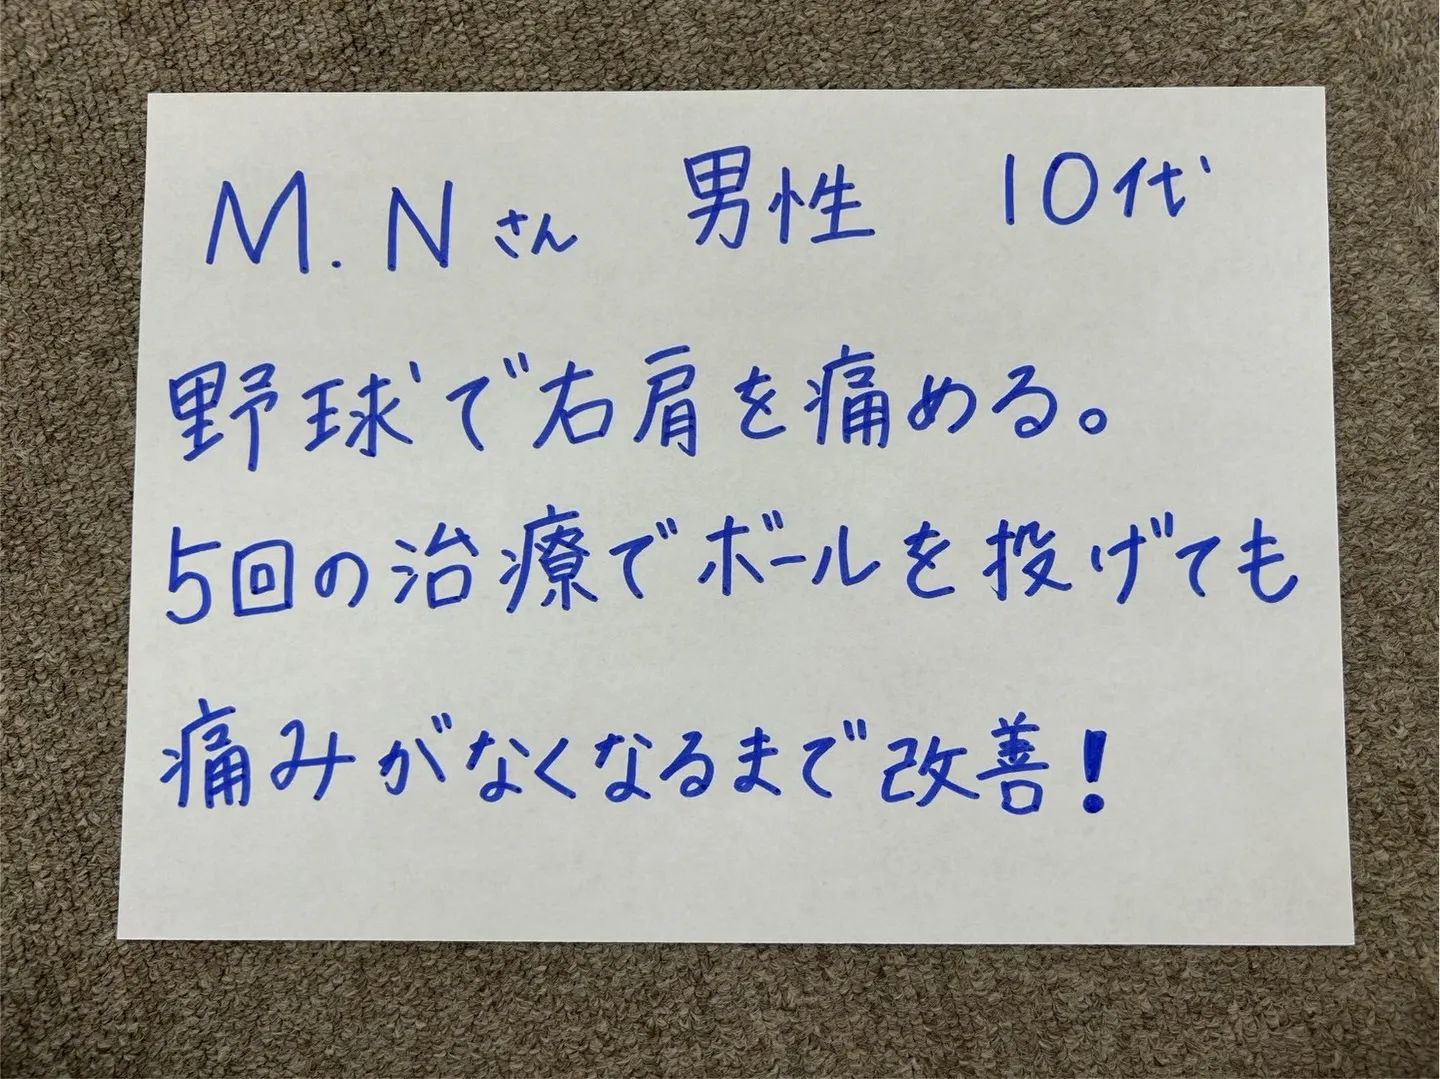 M.Nさん 男性 10代
野球で右肩を痛める。
5回の治療でボールを投げても
痛みがなくなるまで改善!